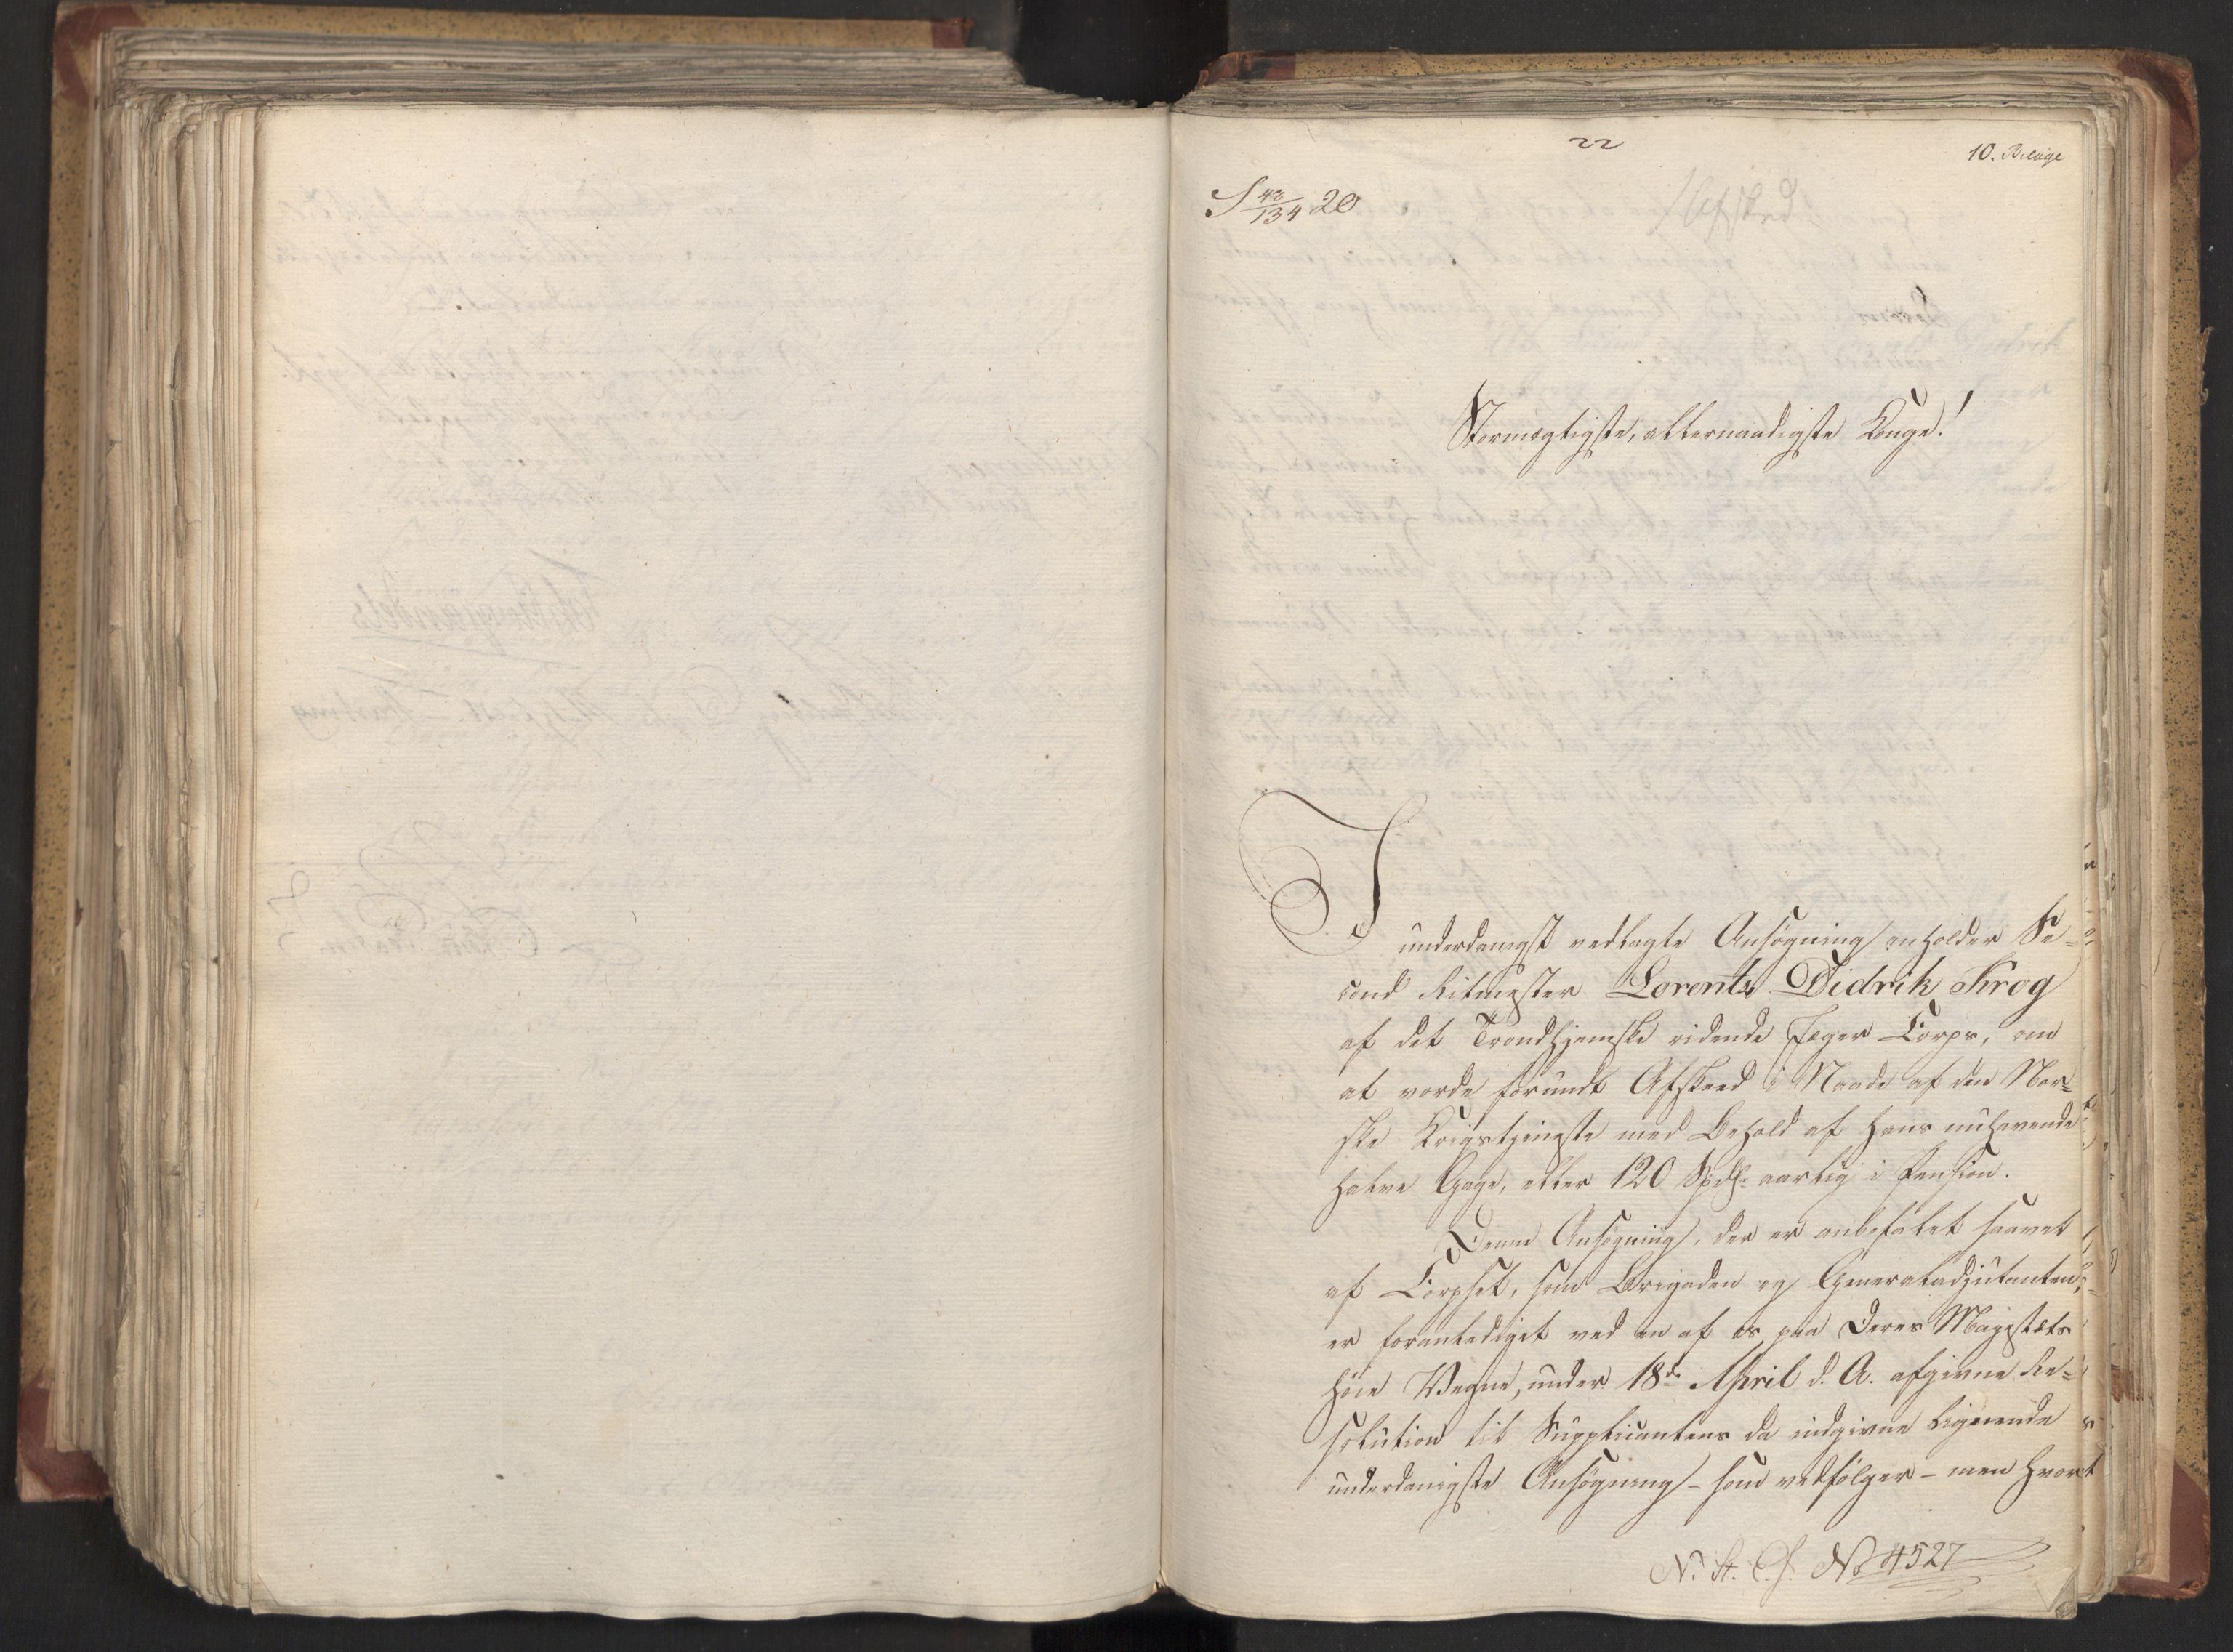 22
10. Bilage
S 43/134 20
Afsked
Stormægtigste, allernaadigste Konge!
I underdanigst vedlagte Ansøgning anholder Se=
cond Ritmester Lorents Didrik Krog
af det Trondhjemske ridende Jæger Corps, om
at vorde forundt Afskeed i Naade af den Nor=
ske Krigstjeneste med Behold af hans nuhavende
halve Gage, eller 120 Spdlr aarlig i Pension.
Denne Ansøgning, der er anbefalet saavel
af Corpset, som Brigaden og Generaladjutanten,
er foranlediget ved en af os paa Deres Majestæts
høie Vegne, under 18de April d. A. afgivne Re=
solution til Supplicantens da indgivne lignende
underdanigste Ansøgning - som vedfølger - men hvort
N. St. C. J. No 4527